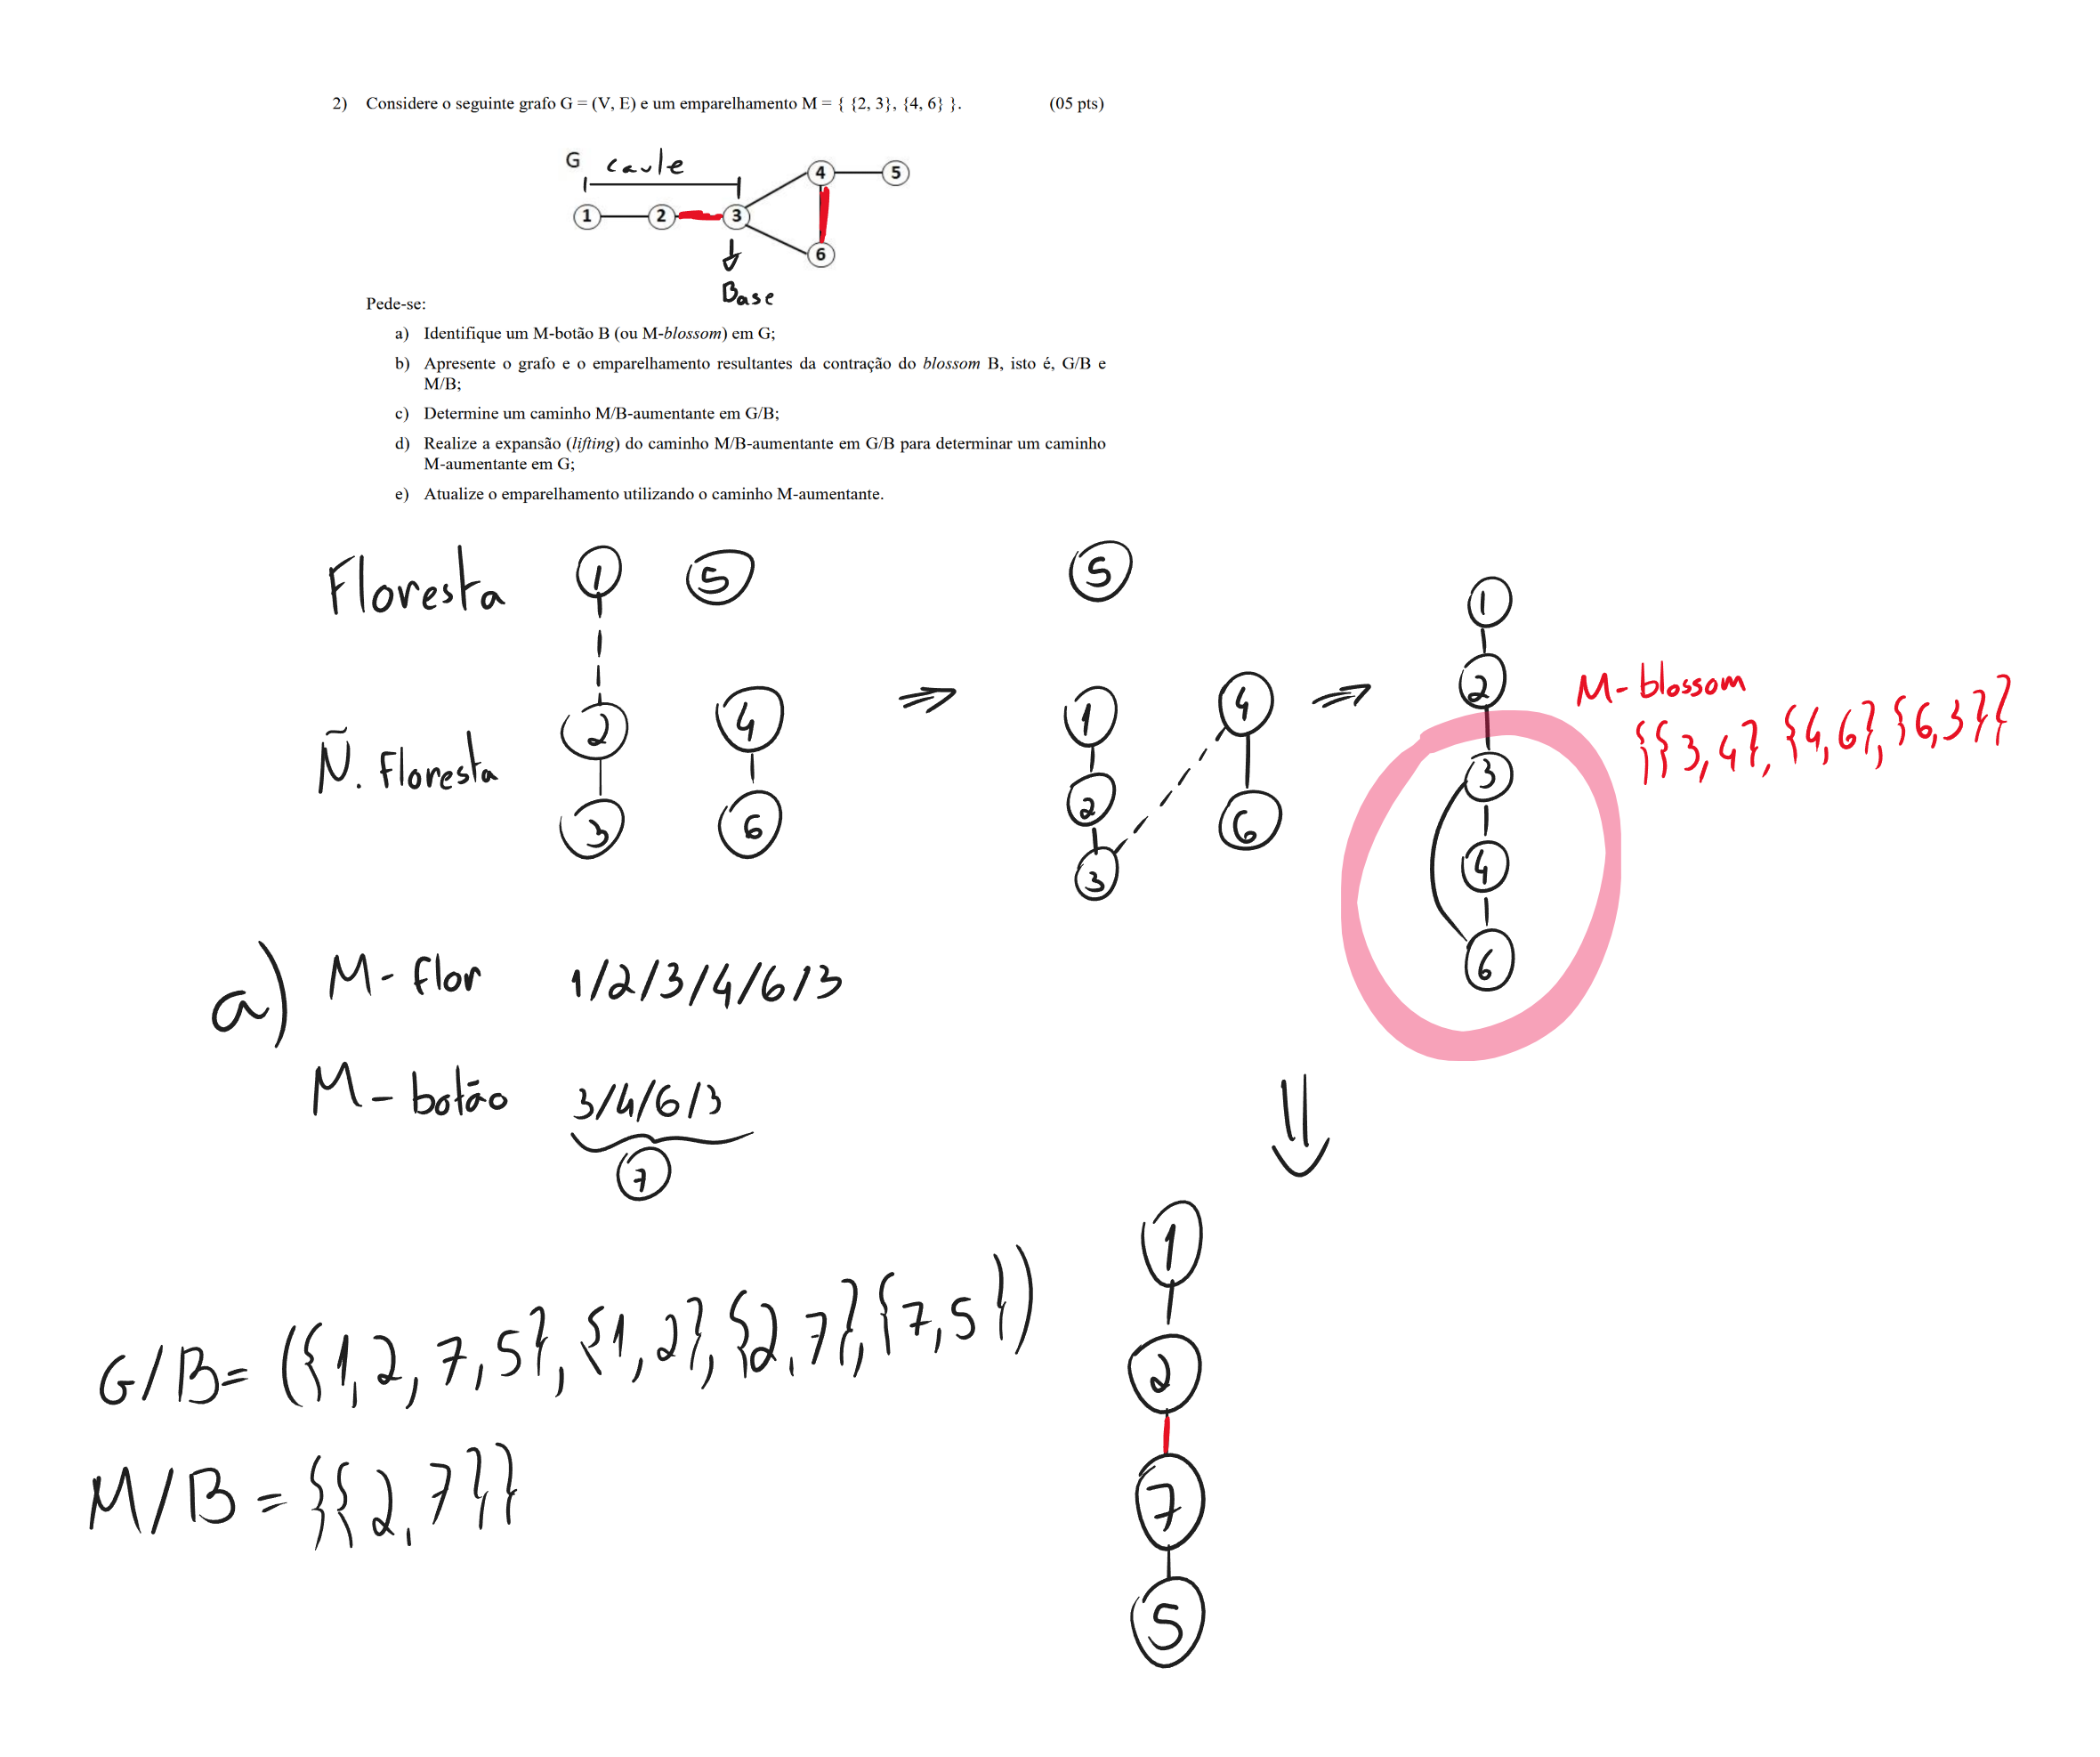 2) Considere o seguinte grafo G = (V, E) e um emparelhamento M = { {2, 3}, {4, 6} }. (05 pts)
G caule
4 5
1 2 3
6
Base
Pede-se:
a) Identifique um M-botão B (ou M-blossom) em G;
b) Apresente o grafo e o emparelhamento resultantes da contração do blossom B, isto é, G/B e
M/B;
c) Determine um caminho M/B-aumentante em G/B;
d) Realize a expansão (lifting) do caminho M/B-aumentante em G/B para determinar um caminho
M-aumentante em G;
e) Atualize o emparelhamento utilizando o caminho M-aumentante.
Floresta 1 5 5 1
Ñ. Floresta 2 4 ⇒ 1 4 ⇒ 2 M-blossom
{{3,4}, {4,6}, {6,3}}
3 6 2 6 3
3 4
6
a) M-flor 1/2/3/4/6/3
M-botão 3/4/6/3
7
⇓
G/B= ({1,2,7,5}, {1,2}, {2,7}, {7,5})
M/B = {{2,7}}
1
2
7
5